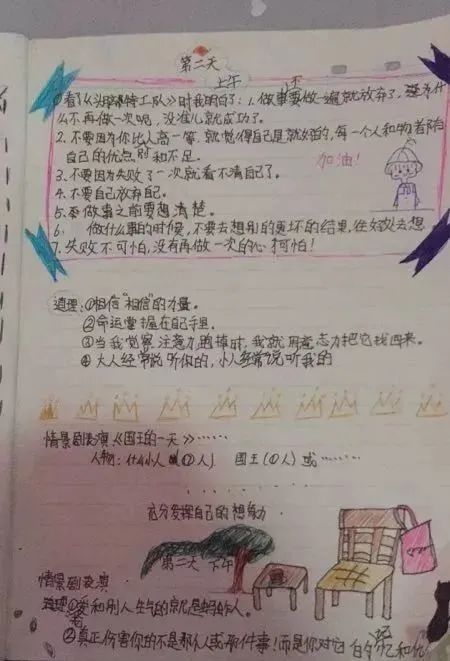 第二天
上午
①看了《头脑特工队》时我明白了：1.做事要做一遍就放弃了，为什
么不再做一次呢，没准儿就成功了。
2.不要因为你比人高一等，就觉得自己是最好的，每一个人和物者有
自己的优点和不足。
加油！
3.不要因为失败了一次就看不清自己了。
4.不要自己放弃自己。
5.做事之前要想清楚。
6.做什么事的时候，不要去想别的更坏的结果，往好处去想
7.失败不可怕，没有再做一次的心可怕！
道理：①相信“相信”的力量。
②命运掌握在自己手里。
③当我觉察注意力跑掉时，我就用意志力把它找回来。
④大人经常说听你的，小人经常说听我的
情景剧表演《国王的一天》……
人物：什么小人（①人） 国王（①人）或……
充分发挥自己的想象力
第二天 下午
情景剧表演
道理①爱和别人生气的就是蚂蚁人。
②真正伤害你的不是那个人或那件事！而是你对它的记忆和